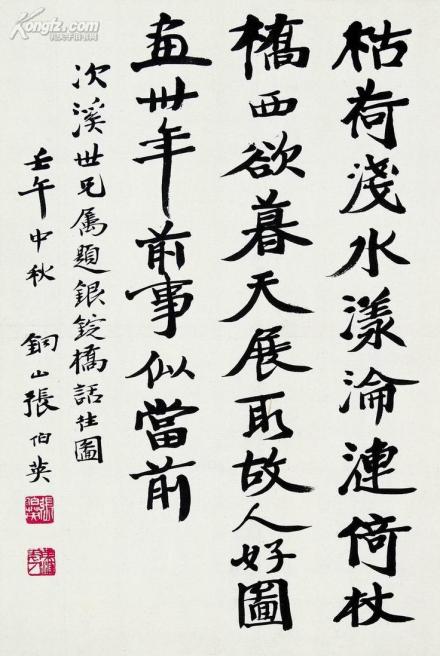 枯荷淺水漾淪漣倚杖
橋西欲暮天展取故人好圖
畫卅年前事似當前
次溪世兄属題銀錠橋話往圖
壬午中秋 銅山張伯英
張伯英
Kongfz.com